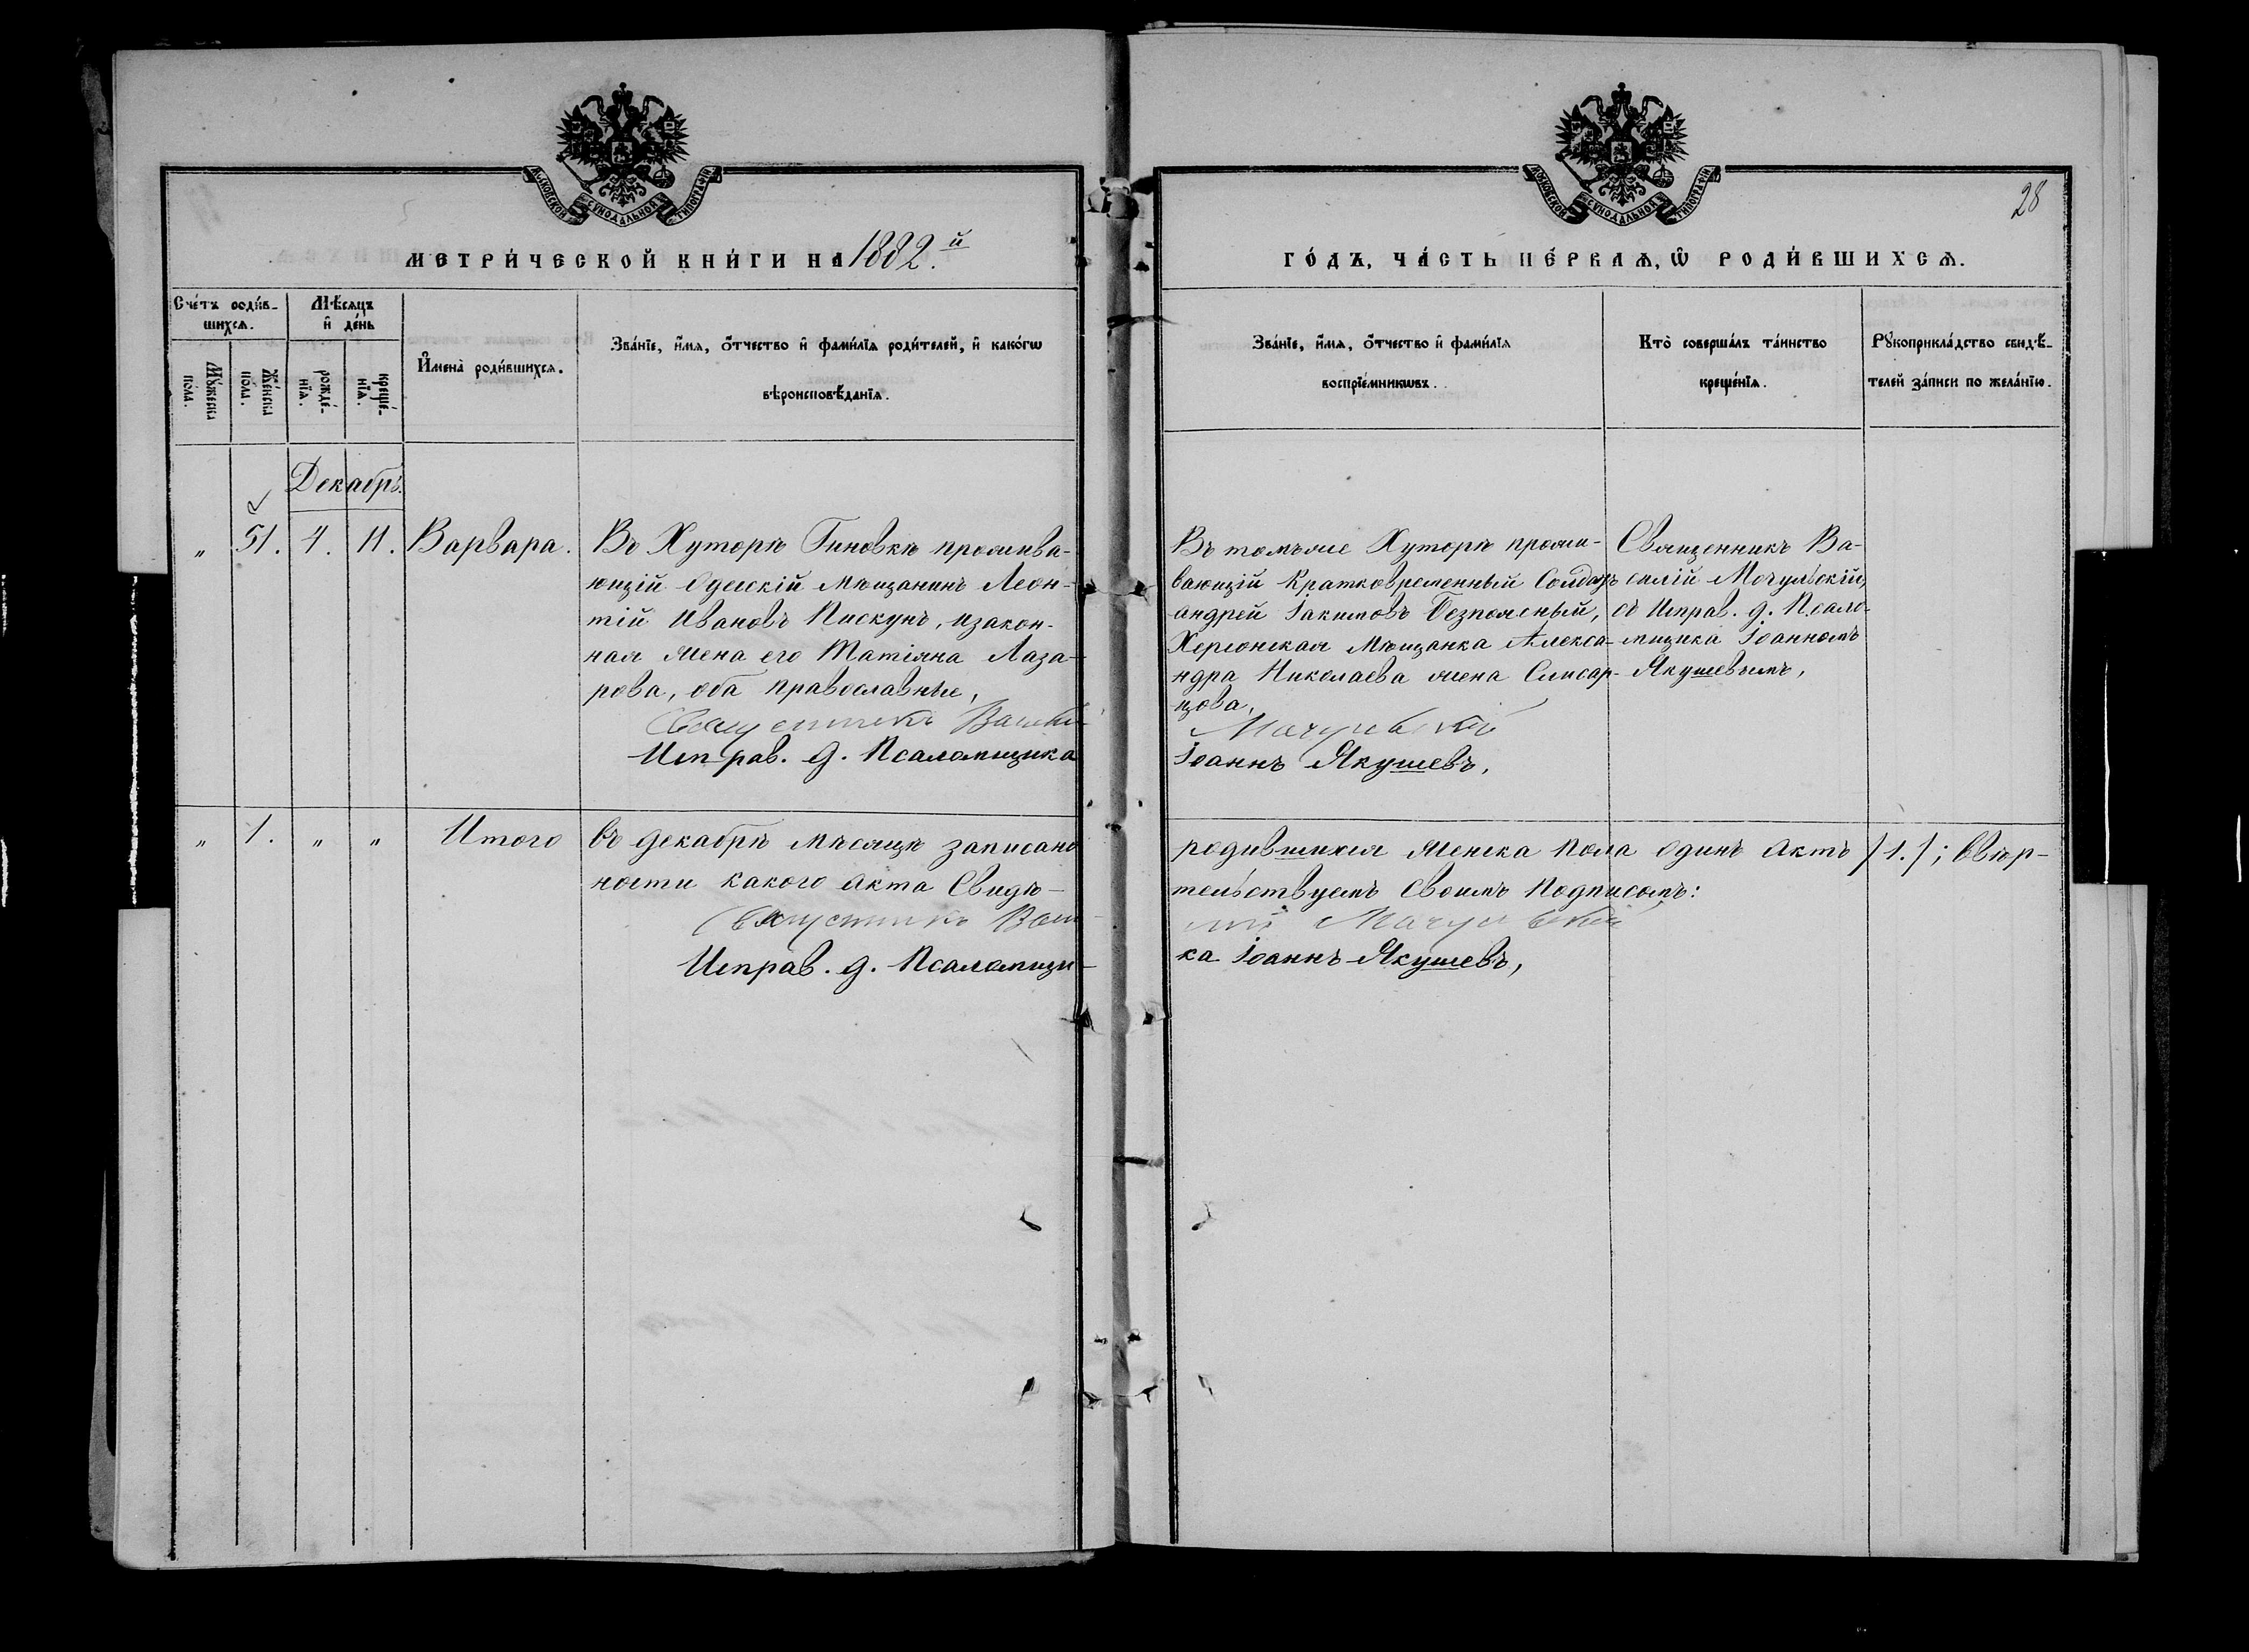 МОСКОВСКОЙ СѴНОДАЛЬНОЙ ТИПОГРАФІИ
МЕТРИ́ЧЕСКОЙ КНИ́ГИ НА 1882.й
Сче́тъ роди́в-
шихсѧ.
Мѣ́сѧцъ
и҆ де́нь
Мꙋ́жеска
по́ла.
Же́нска
по́ла.
рожде́-
нїѧ.
креще́-
нїѧ.
И҆мена̀ роди́вшихсѧ.
Зва́нїе, и҆́мѧ, о҆́тчество и҆ фами́лїѧ роди́телей, и҆ како́гѡ
вѣроисповѣ́данїѧ.
Декабрь.
" 51. 4. 11. Варвара.
Въ Хуторѣ Гиновкѣ прожива-
ющій Одесскій Мѣщанинъ Леон-
тій Ивановъ Пискунъ, изакон-
ная Жена его Татіяна Лаза-
рова, оба Православные,
Священникъ Василій
Исправ. д. Псаломщика
" 1. " " Итого въ декабрѣ мѣсяцѣ записано
ности какого Акта Свидѣ-
Священникъ Васи-
Исправ. д. Псаломщи-
МОСКОВСКОЙ СѴНОДАЛЬНОЙ ТИПОГРАФІИ
28
ГО́ДЪ, ЧА́СТЬ ПЕ́РВАѦ, Ѡ҆ РОДИ́ВШИХСѦ.
Зва́нїе, и҆́мѧ, о҆́тчество и҆ фами́лїѧ
воспрїе́мникѡвъ.
Кто̀ соверша́лъ та́инство
креще́нїѧ.
Рꙋкоприкла́дство свидѣ́-
телей за́писи по жела́нїю.
Въ томъже Хуторѣ прожи-
вающій Кратковременный Солдатъ
Андрей Іакимовъ Безпоясный,
Херсонская Мѣщанка Алекса-
ндра Николаева жена Слисар-
цова,
Мочульскій
Іоаннъ Якушевъ,
Священникъ Ва-
силій Мочульскій,
съ Исправ. д. Псало-
мщика Іоанномъ
Якушевымъ,
родившихся Женска Пола Одинъ Актъ /1./; Ввѣр-
тельствуемъ Своимъ Подписомъ:
лій Мочульскій
ка Іоаннъ Якушевъ,